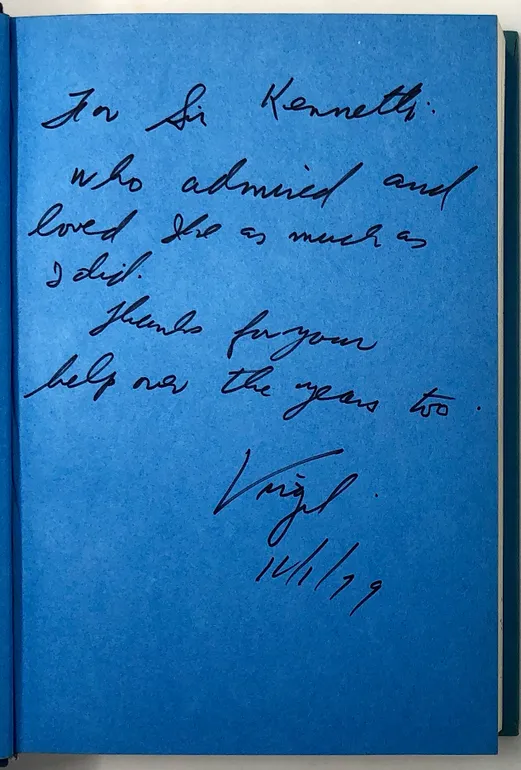 For Sir Kenneth:
who admired and
loved Ike as much as
I did.
Thanks for your
help over the years too.
Virgil.
12/1/79